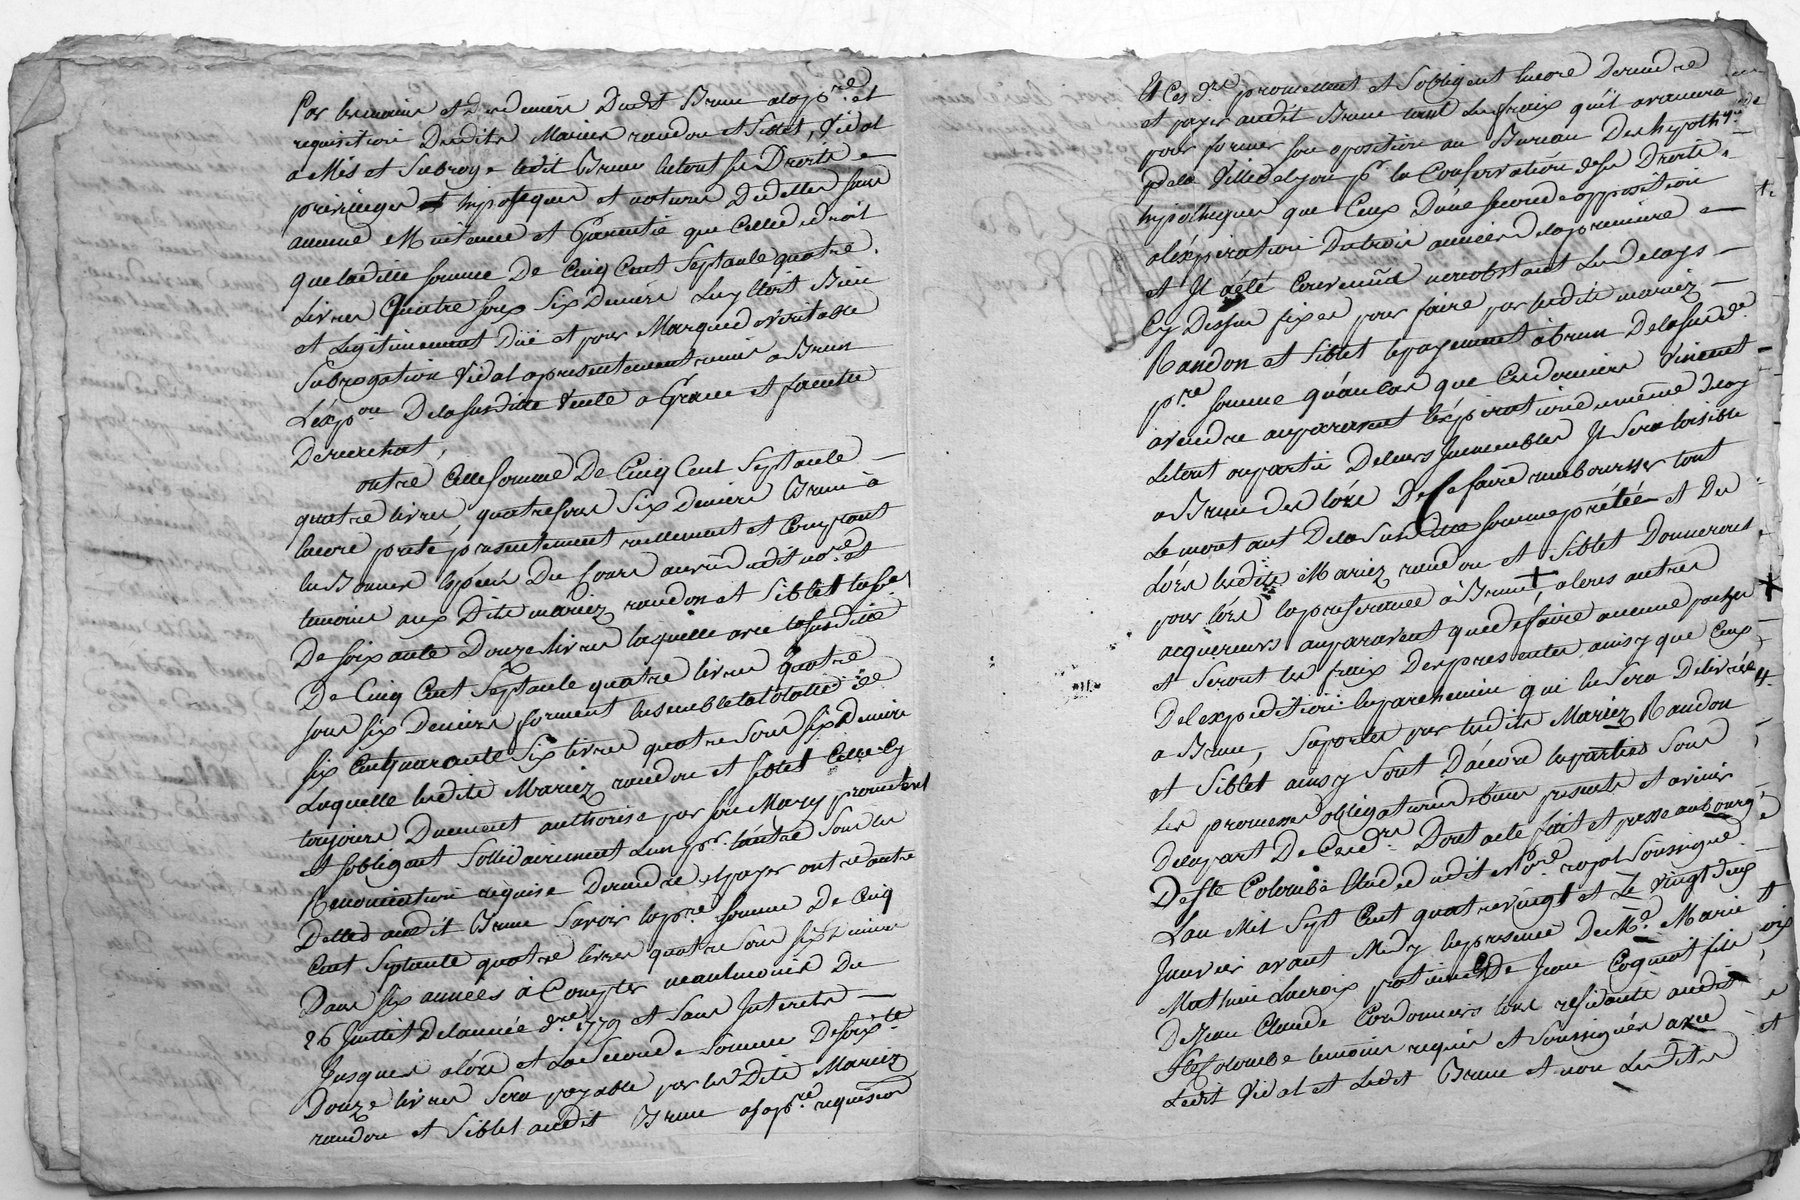 Par les mains et des deniers Dudit Brun à la pre. et
requisition Desdits Mariez randon et Siblet, Vidal
a Mis et Subroge ledit Brun le tout ses Droits
privileges et hipoteques et actions Dicelles sans
aucune Mintenue et Garentie que Celle de droit
que ladite somme De Cinq Cent Septante quatre
Livres Quatre sous Six Deniers Luy Etoit Bien
et Legitimement Duë et pour Marque de veritable
Subrogation Vidal a presentement remis a Brun
L'exp.on De la Susditte Vente a Grace et faculté
De rachat,
outre Cette somme De Cinq Cent Septante
quatre livres quatre sous Six Deniers Brun à
Encore preté presentement reellement et Comptant
En Bonnes Especes Du Cours au vû dudit nore. et
temoins aux Dits mariez randon et Siblet la se.
De soixante Douze livres laquelle avec la susditte
De Cinq Cent Septante quatre livres quatre
sous six Deniers forment Ensemble la totalité de
Six Cent quarante Six livres quatre Sous six deniers
Laquelle lesdits Mariez randon et siblet Celle Cy
toujours Duement authorisé par son Mary promettent
et sobligent Sollidairement L'un pr. l'autre Sous les
Renonciation requise De rendre et payer outre autre
Dettes audit Brun Savoir la pre. somme De Cinq
Cent Septante quatre livres quatre Sous six Deniers
Dans six années à Compter neantmoins Du
26 Juillet De l'année dre. 1779 et Sans Interets
Jusques alors et La Seconde Somme De soixte.
Douze livres Sera payable par lesdits Mariez
randon et Siblet audit Brun a sa pre. requision
Et Ces dre. promettent et sobligent Encore De rendre
et payer audit Brun tant Les fraix qu'il avancera
pour former son oposition au Bureau Des hypotheques
De la Ville de lyon pr. la Conservation de ses Droits
hypotheques que Ceux D'une seconde opposition
al'expiration Des trois années De la premiere
et Il a été Convenu nonobstant Les Delays
Cy Dessus fixés pour faire par lesdits mariez
Randon et Siblet le payement à brun De la susde.
pre. somme qu'au Cas que Ces Derniers Vinsent
a vendre auparavant l'expiration du même Delay
Le tout ou partie De leurs Immeubles Il Sera loisible
a Brun des lors De se faire rembourser tout
Le montant De la Susditte somme prétée et Des
Lors lesdits Mariez randon et Siblet Donneront
pour lors la preferance à Brun + a leurs autres
acquereurs auparavant que de faire aucune passer
et Seront les fraix Des presentes ainsy que Ceux
De l'expedition En parchemin qui En Sera Delivrée
a Brun, Suportés par lesdits Mariez Randon
et Siblet ainsy Sont D'accord les parties Sous
Les promesses obligations De biens presents et avenir
De la part De Cesdre. Dont acte fait et passé au bourg
De Ste Colombe Etude dudit Nore. royal Soussigné
L'an Mil Sept Cent quatre vingt et Le Vingt deux
Janvier avant Midy En presence De Me. Marie
Mathieu Lacroix praticien De Jean Coquat fils
De Jean Claude Cordonniers tous residants audit
Ste Colombe temoins requis et Soussignés avec
Ledit Vidal et Ledit Brun et non Lesdits